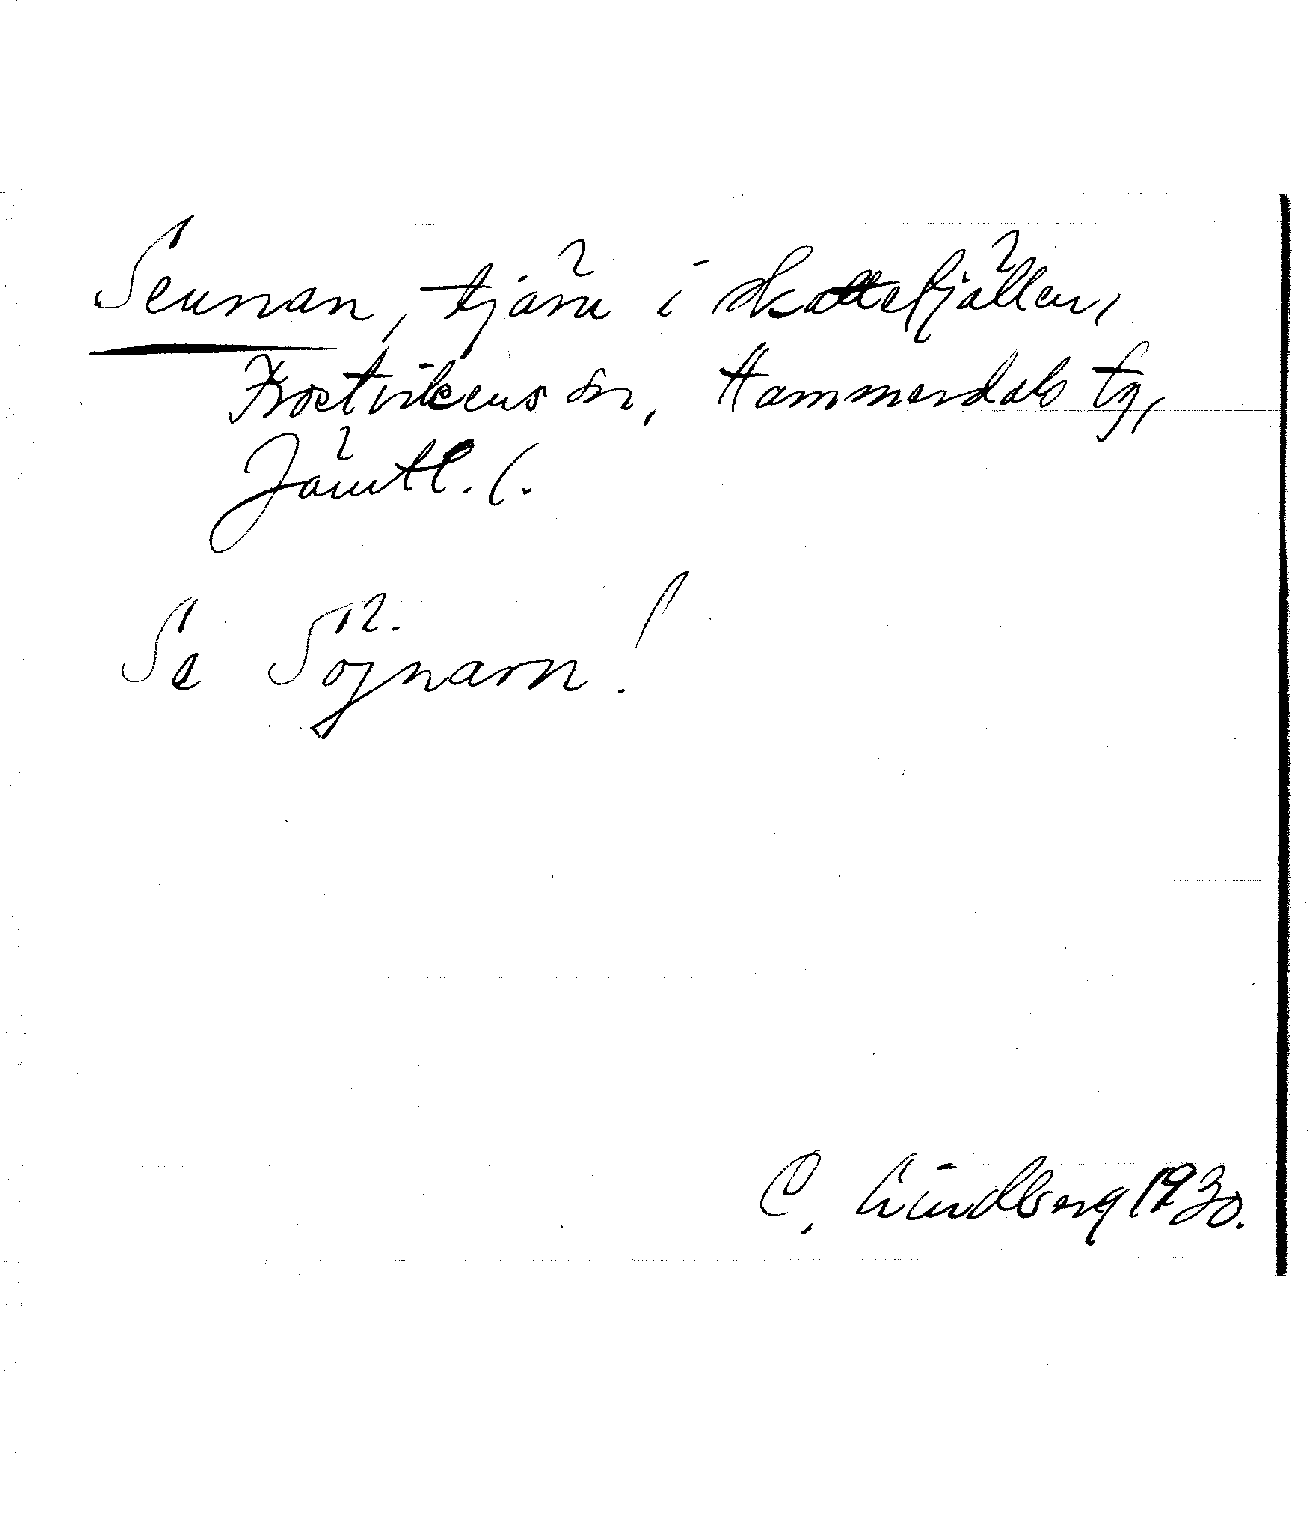 Seunan, tjärn i Skattefjällen,
Frostvikens sn, Hammerdals tg,
Jämtl. l.
Se Söjnarn!
C. Lindberg 1930.